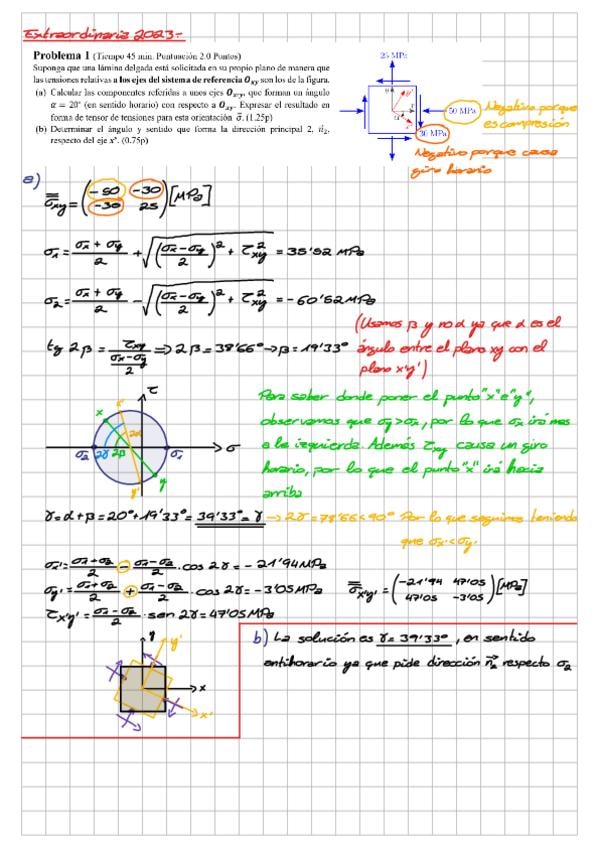 Extraordinaria 2023:-
Problema 1 (Tiempo 45 min. Puntuación 2.0 Puntos)
Suponga que una lámina delgada está solicitada en su propio plano de manera que
las tensiones relativas a los ejes del sistema de referencia Oxy son los de la figura.
(a) Calcular las componentes referidas a unos ejes Ox'y', que forman un ángulo
α = 20° (en sentido horario) con respecto a Oxy. Expresar el resultado en
forma de tensor de tensiones para esta orientación σ. (1.25p)
(b) Determinar el ángulo y sentido que forma la dirección principal 2, n2,
respecto del eje x'. (0.75p)
25 MPa
50 MPa
30 MPa
Negativo porque
es compresión
Negativo porque causa
giro horario
a)
σxy = (-50 -30
-30 25) [MPa]
σ1 = (σx + σy)/2 + √(((σx-σy)/2)² + τ²xy) = 35'52 MPa
σ2 = (σx + σy)/2 - √(((σx-σy)/2)² + τ²xy) = -60'52 MPa
(Usamos β y no α ya que α es el
tg 2β = τxy/((σx-σy)/2) => 2β = 38'66° → β = 19'33°
ángulo entre el plano xy con el
plano x'y')
Para saber donde poner el punto "x" e "y",
observamos que σy > σx, por lo que σx irá mas
a la izquierda. Además τxy causa un giro
horario, por lo que el punto "x" irá hacia
arriba
τ
x'
x
2α
σ2 2γ 2β σ1 σ
y
y'
γ = α + β = 20° + 19'33° = 39'33° = γ → 2γ = 78'66 < 90° Por lo que seguimos teniendo
que σx' < σy'
σx' = (σ1+σ2)/2 - (σ1-σ2)/2 · cos 2γ = -21'94 MPa
σy' = (σ1+σ2)/2 + (σ1-σ2)/2 · cos 2γ = -3'05 MPa
σx'y' = (-21'94 47'05
47'05 -3'05) [MPa]
τx'y' = (σ1-σ2)/2 · sen 2γ = 47'05 MPa
y y'
x
x'
b) La solución es γ = 39'33°, en sentido
antihorario ya que pide dirección n2 respecto σ2